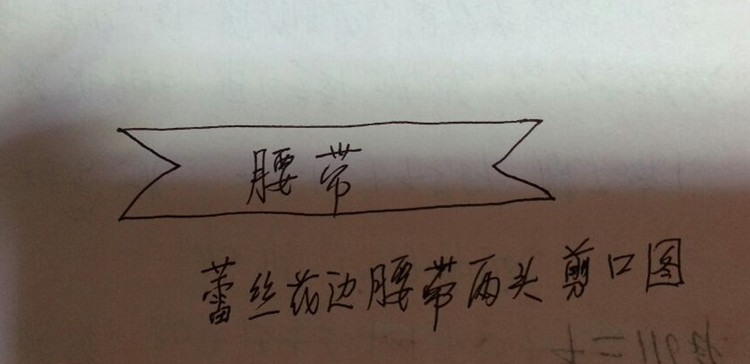 腰带
蕾丝花边腰带两头剪口图